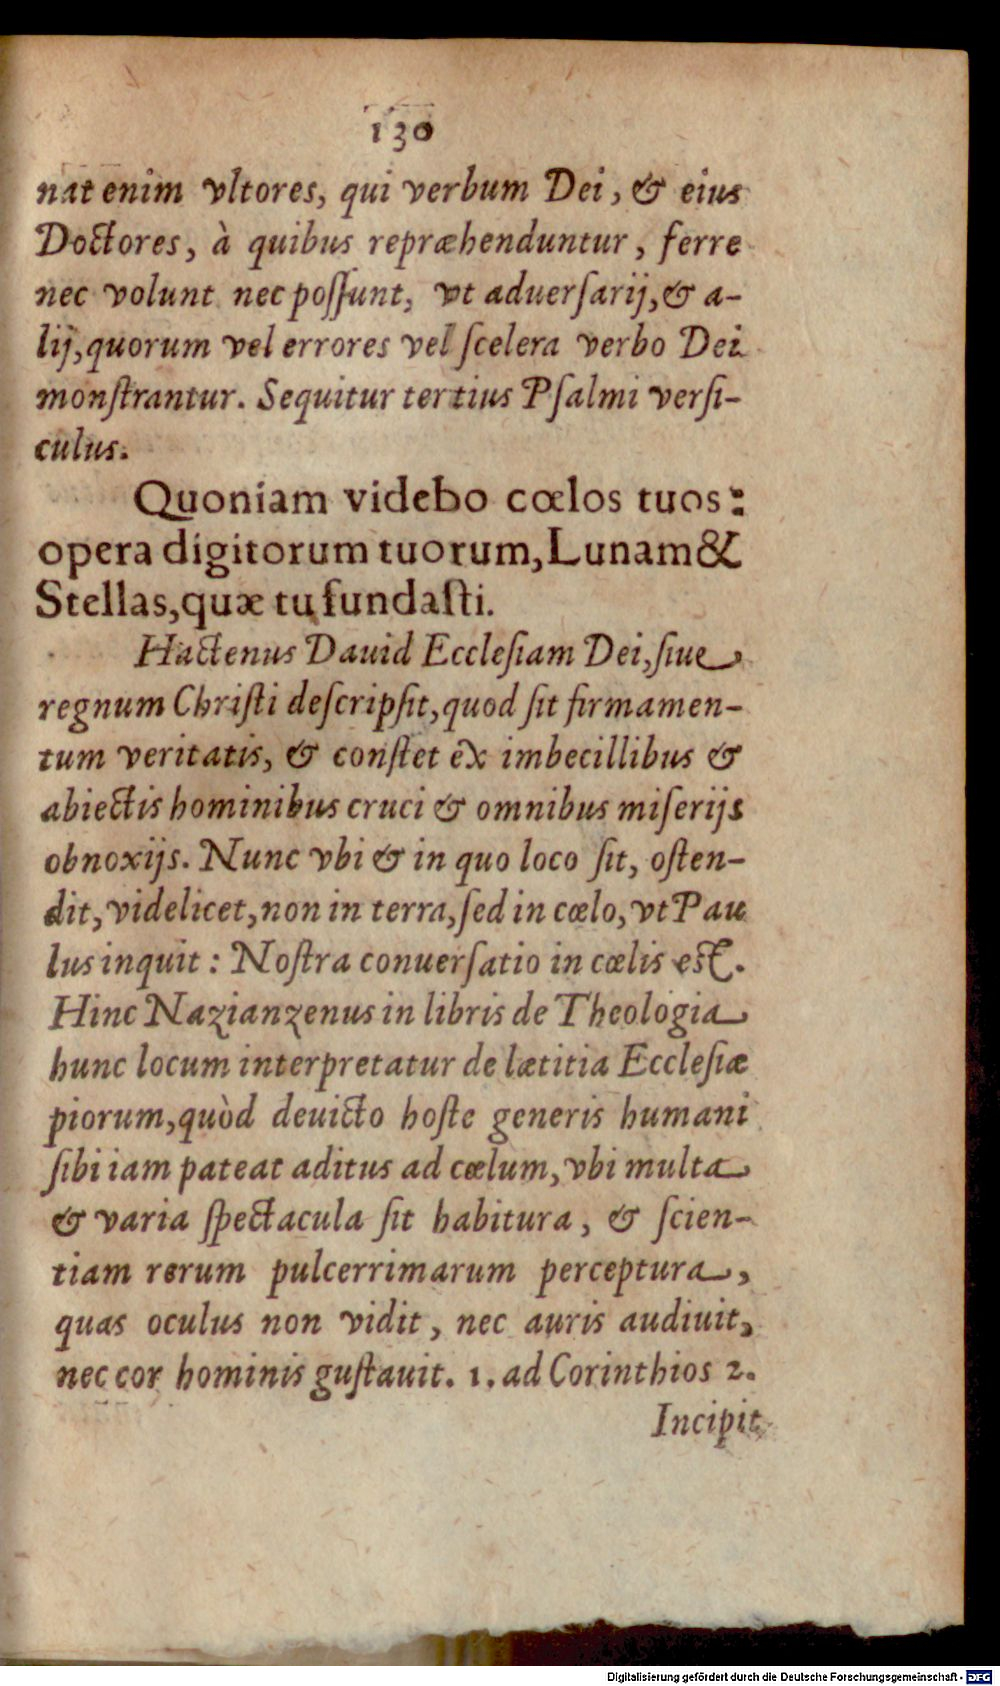 130
nat enim vltores, qui verbum Dei, & eius
Doctores, à quibus repræhenduntur, ferre
nec volunt nec poſſunt, vt aduerſarij, & a-
lij, quorum vel errores vel ſcelera verbo Dei
monſtrantur. Sequitur tertius Pſalmi verſi-
culus.
Quoniam videbo cœlos tuos:
opera digitorum tuorum, Lunam &
Stellas, quæ tu fundaſti.
Hactenus Dauid Eccleſiam Dei, ſiue
regnum Chriſti deſcripſit, quod ſit firmamen-
tum veritatis, & conſtet ex imbecillibus &
abiectis hominibus cruci & omnibus miſerijs
obnoxijs. Nunc vbi & in quo loco ſit, oſten-
dit, videlicet, non in terra, ſed in cœlo, vt Pau
lus inquit: Noſtra conuerſatio in cœlis eſt.
Hinc Nazianzenus in libris de Theologia
hunc locum interpretatur de lætitia Eccleſiæ
piorum, quòd deuicto hoſte generis humani
ſibi iam pateat aditus ad cœlum, vbi multa
& varia ſpectacula ſit habitura, & ſcien-
tiam rerum pulcerrimarum perceptura,
quas oculus non vidit, nec auris audiuit,
nec cor hominis guſtauit. 1. ad Corinthios 2.
Incipit
Digitalisierung gefördert durch die Deutsche Forschungsgemeinschaft - DFG